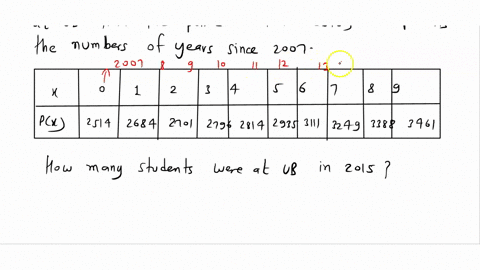 the numbers of years since 2007.
2007 8 9 10 11 12 13
x 0 1 2 3 4 5 6 7 8 9
P(x) 2514 2684 2701 2796 2814 2935 3111 3249 3388 3461
How many students were at UB in 2015?